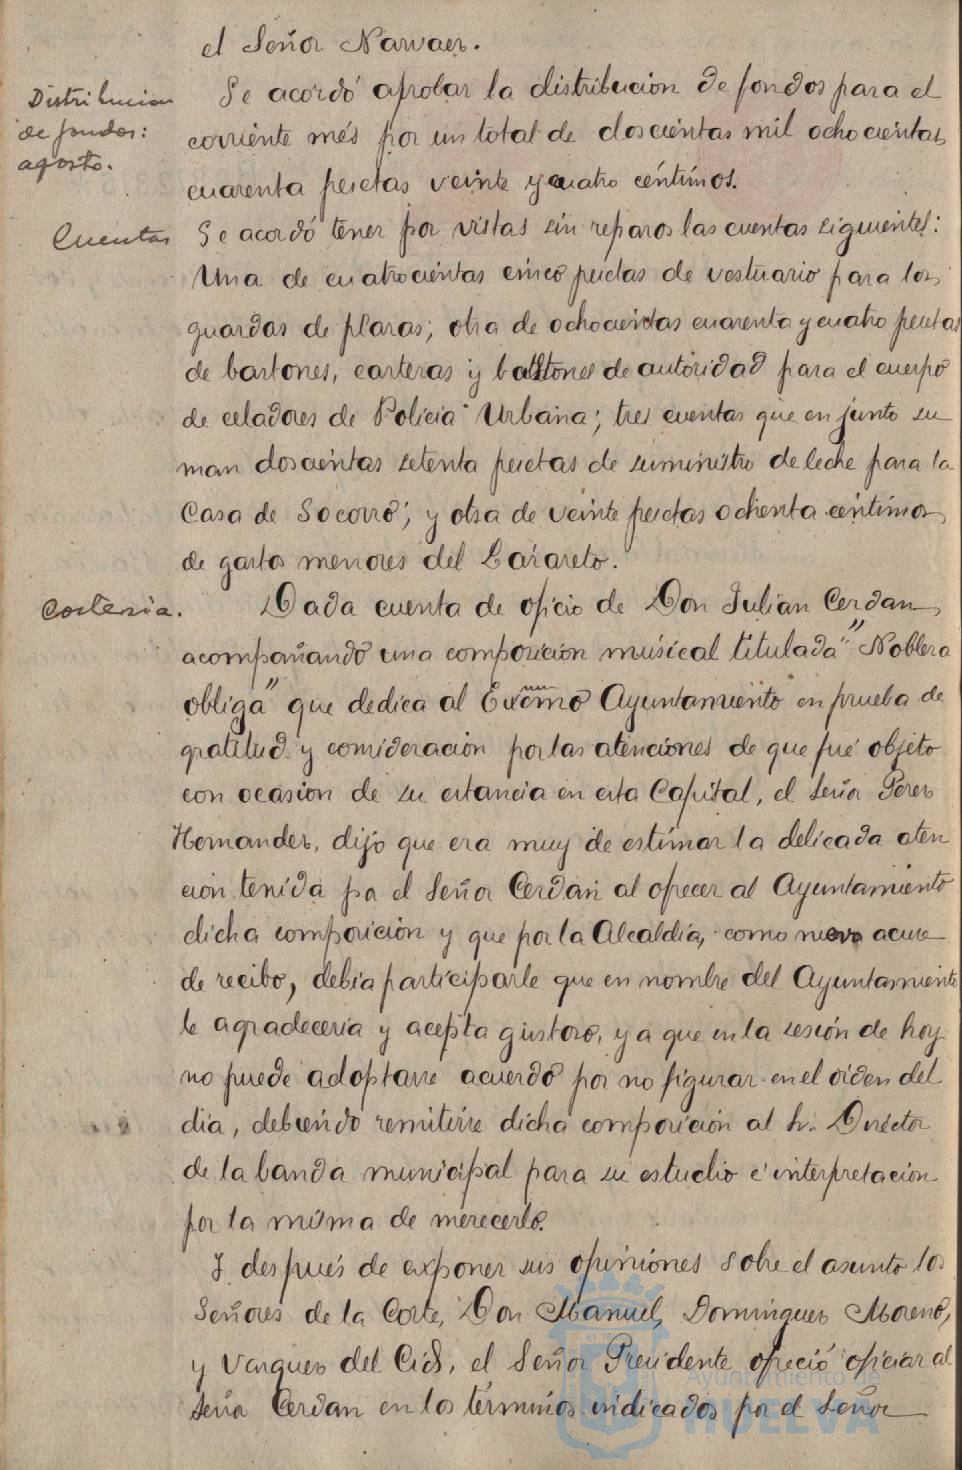 el Señor Narvaez.
Distribucion
de fondos:
agosto.
Se acordó aprobar la distribucion de fondos para el
corriente més por un total de doscientas mil ochocientas
cuarenta pesetas veinte y cuatro céntimos.
Cuentas
Se acordó tener por vistas sin reparos las cuentas siguientes:
Una de cuatrocientas cinco pesetas de vestuario para los
guardas de plazas; otra de ochocientas cuarenta y cuatro pesetas
de bastones, carteras y bastones de autoridad para el cuerpo
de celadores de Policia Urbana; tres cuentas que en junto su
man doscientas setenta pesetas de suministro de leche para la
Casa de Socorro; y otra de veinte pesetas ochenta céntimos
de gastos menores del Lazareto.
Cortesia.
Dada cuenta de oficio de Don Julian Cerdan
acompañando una composicion musical titulada "Nobleza
obliga" que dedica al Excmo Ayuntamiento en prueba de
gratitud y consideracion por las atenciones de que fué objeto
con ocasion de su estancia en esta Capital, el Señor Perez
Hernandez, dijo que era muy de estimar la delicada aten
cion tenida por el Señor Cerdan al ofrecer al Ayuntamiento
dicha composicion y que por la Alcaldia, como mero acuse
de recibo, debia participarle que en nombre del Ayuntamiento
le agradeceria y acepta gustoso, ya que en la sesión de hoy
no puede adoptarse acuerdo por no figurar en el orden del
dia, debiendo remitirse dicha composicion al Sr. Director
de la banda municipal para su estudio é interpretacion
por la misma de merecerlo.
Y después de exponer sus opiniones sobre el asunto los
Señores de la Corte, Don Manuel, Dominguez Moreno,
y Vazquez del Cid, el Señor Presidente ofreció oficiar al
Señor Cerdan en los términos indicados por el Señor
Ayuntamiento de
HUELVA